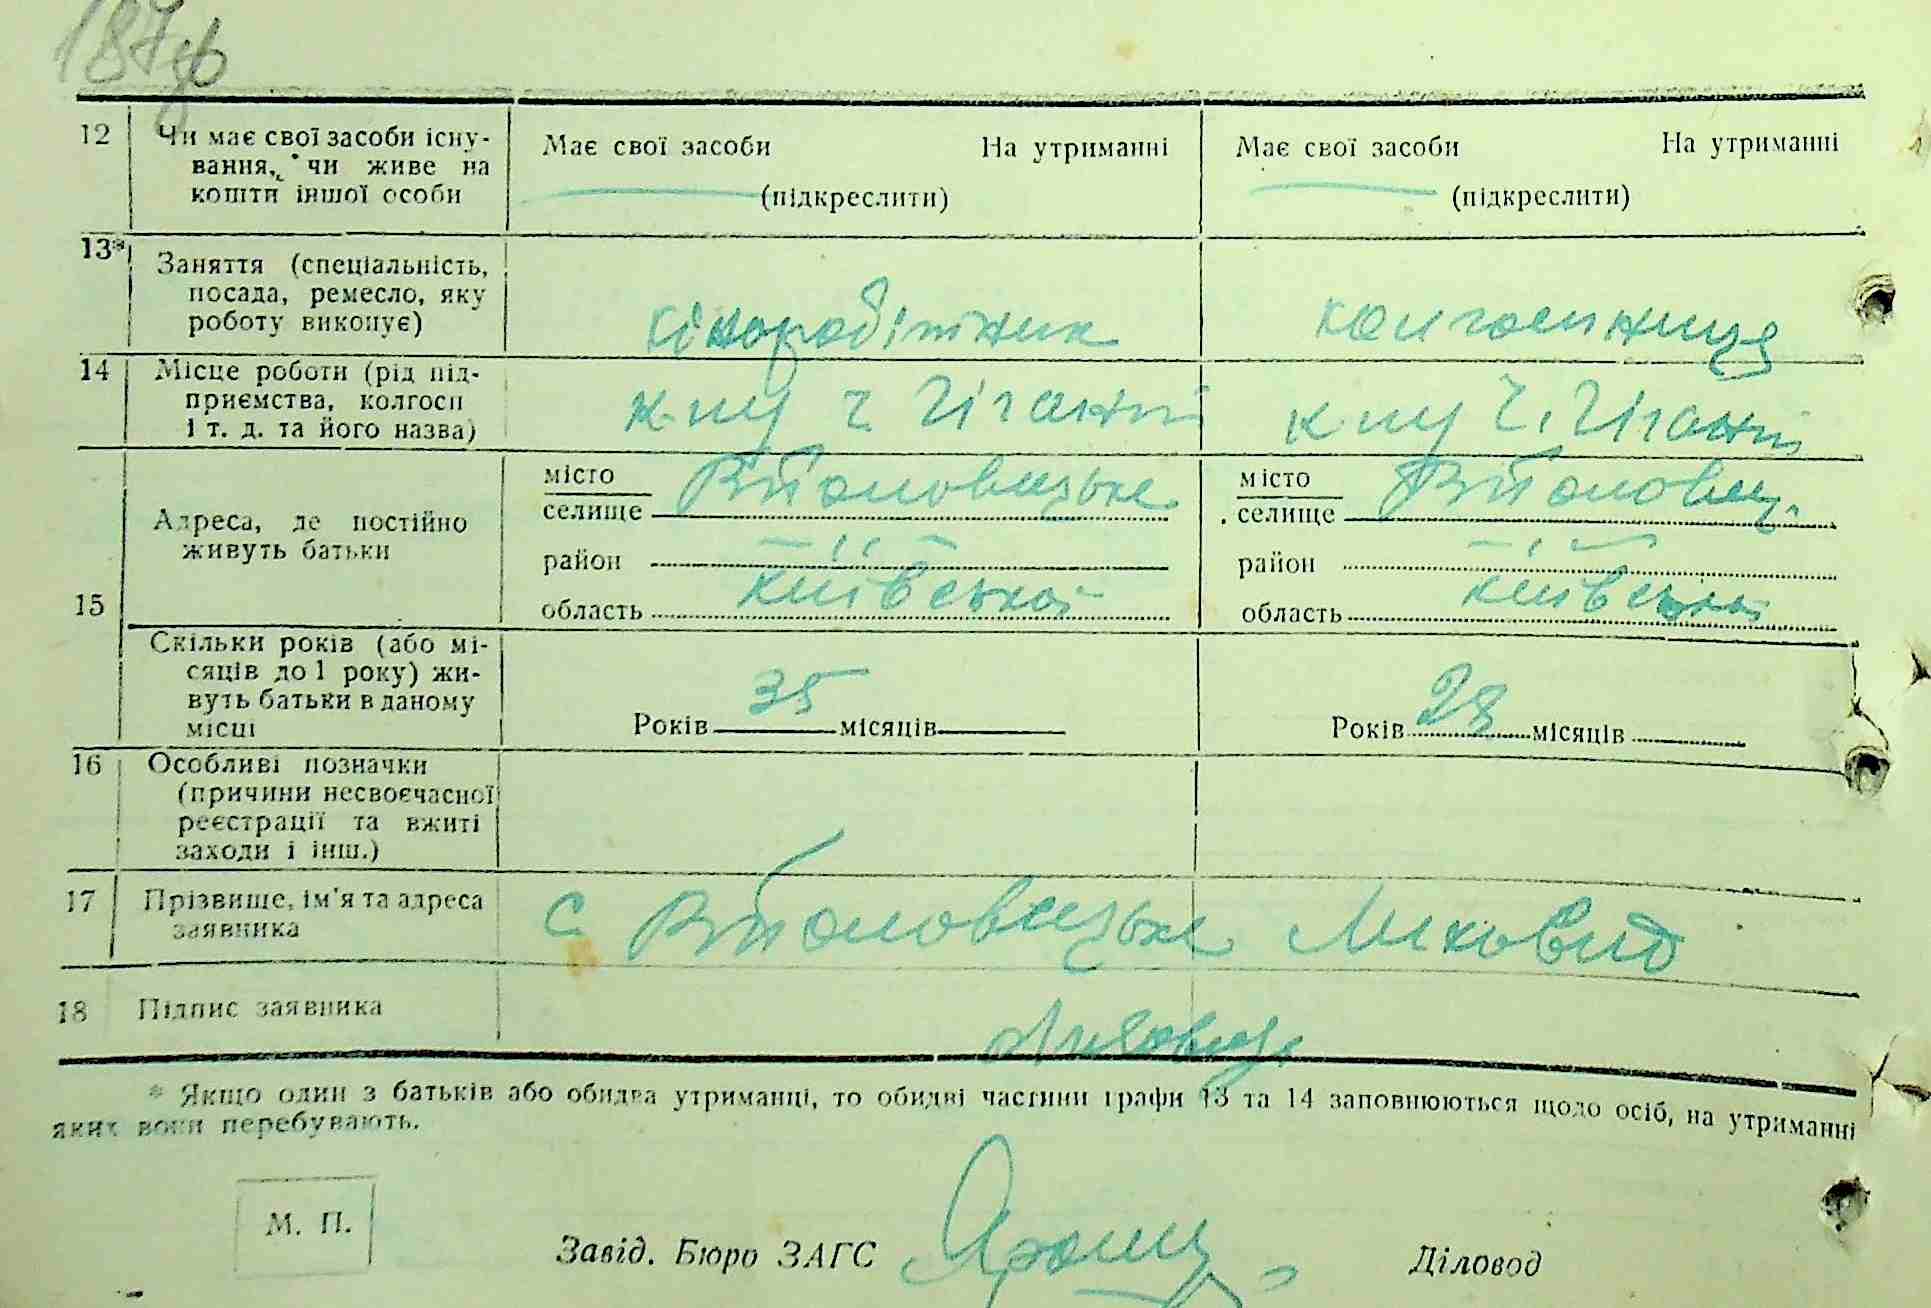 187зв
12 Чи має свої засоби існу-
вання, чи живе на
кошти іншої особи
Має свої засоби На утриманні
(підкреслити)
Має свої засоби На утриманні
(підкреслити)
13* Заняття (спеціальність,
посада, ремесло, яку
роботу виконує)
кіноробітник
колгоспниця
14 Місце роботи (рід під-
приємства, колгосп
і т. д. та його назва)
Гігант
Гігант
15 Адреса, де постійно
живуть батьки
місто
селище
район
область Київської
місто
селище
район
область Київської
Скільки років (або мі-
сяців до 1 року) жи-
вуть батьки в даному
місці
Років 35 місяців
Років 28 місяців
16 Особливі позначки
(причини несвоєчасної
реєстрації та вжиті
заходи і інш.)
17 Прізвище, ім'я та адреса
заявника
с
18 Підпис заявника
* Якщо один з батьків або обидва утриманці, то обидві частини графи 13 та 14 заповнюються щодо осіб, на утриманні
яких вони перебувають.
М. П.
Завід. Бюро ЗАГС
Діловод